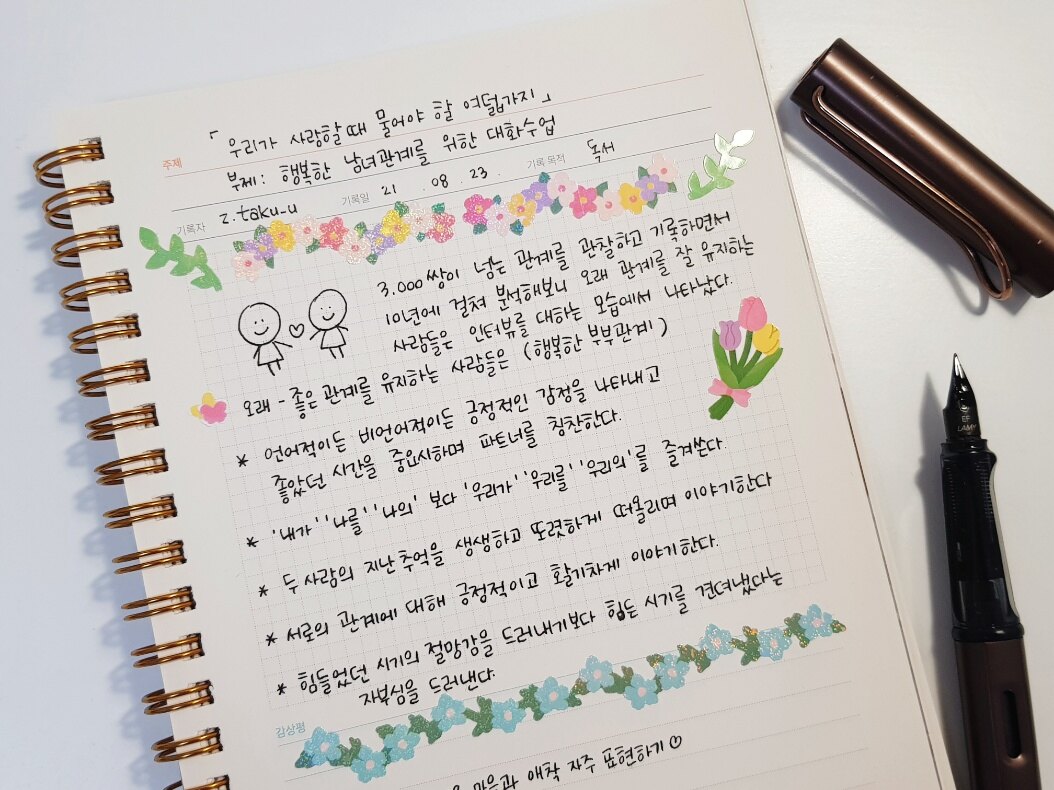 「우리가 사랑할 때 물어야 할 여덟가지」
주제
부제: 행복한 남녀관계를 위한 대화수업
기록자 z.taku_u 기록일 21 . 08 . 23 . 기록 목적 독서
3,000쌍이 넘는 관계를 관찰하고 기록하면서
10년에 걸쳐 분석해보니 오래 관계를 잘 유지하는
사람들은 인터뷰를 대하는 모습에서 나타났다.
오래 - 좋은 관계를 유지하는 사람들은 (행복한 부부관계)
* 언어적이든 비언어적이든 긍정적인 감정을 나타내고
좋았던 시간을 중요시하며 파트너를 칭찬한다.
* '내가' '나를' '나의' 보다 '우리가' '우리를' '우리의'를 즐겨쓴다.
* 두 사람의 지난 추억을 생생하고 또렷하게 떠올리며 이야기한다
* 서로의 관계에 대해 긍정적이고 활기차게 이야기한다.
* 힘들었던 시기의 절망감을 드러내기보다 힘든 시기를 견뎌냈다는
자부심을 드러낸다.
감상평
애착 자주 표현하기
EF
LAMY